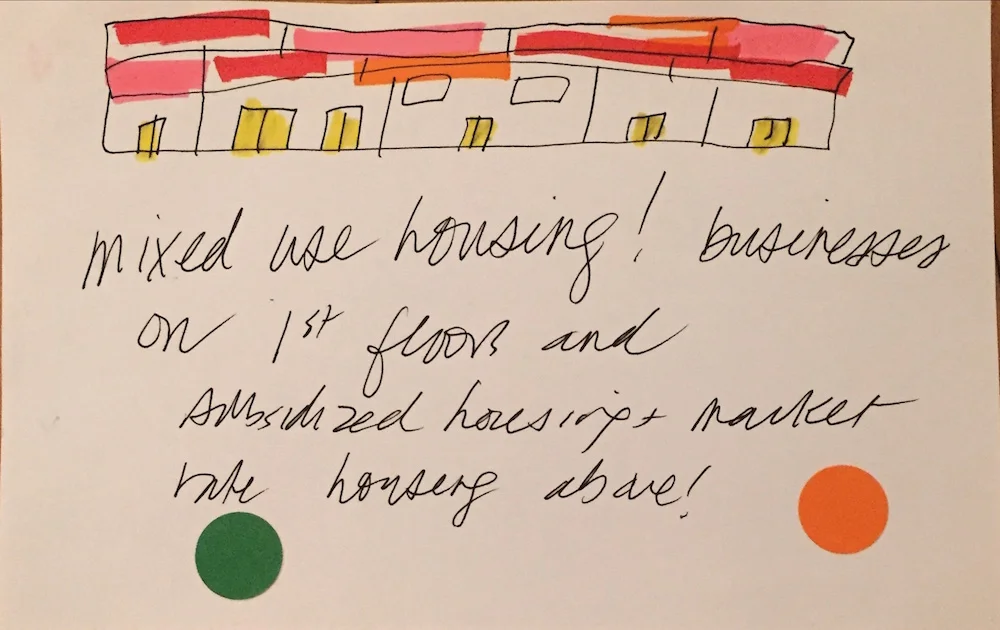 mixed use housing! businesses
on 1st floors and
subsidized housing + market
rate housing above!